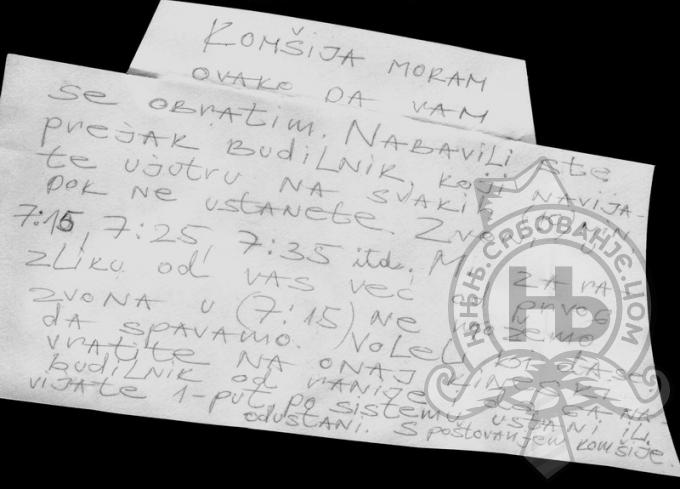 KOMŠIJA MORAM
OVAKO DA VAM
se OBratim. NABAVILI ste
prejak BUDILNIK, koji NAVIJA-
te ujutru NA SVAKIh MIN
DOK NE ustanete. ZVONI U
7:15, 7:25, 7:35 itd. MI ZA RA
ZLIKU od VAS već od prvog
ZVONA U (7:15) NE možemo
DA SPAVAMO. Voleli bi da se
VRATITE NA ONAJ KINESKI
BUDILNIK od ranije da GA NA-
VIJATE 1-PUT po sistemu USTANI ILI
odustani. S poštovanjem komšije.
ЊЊЊ.СРБОВАЊЕ.ЦОМ